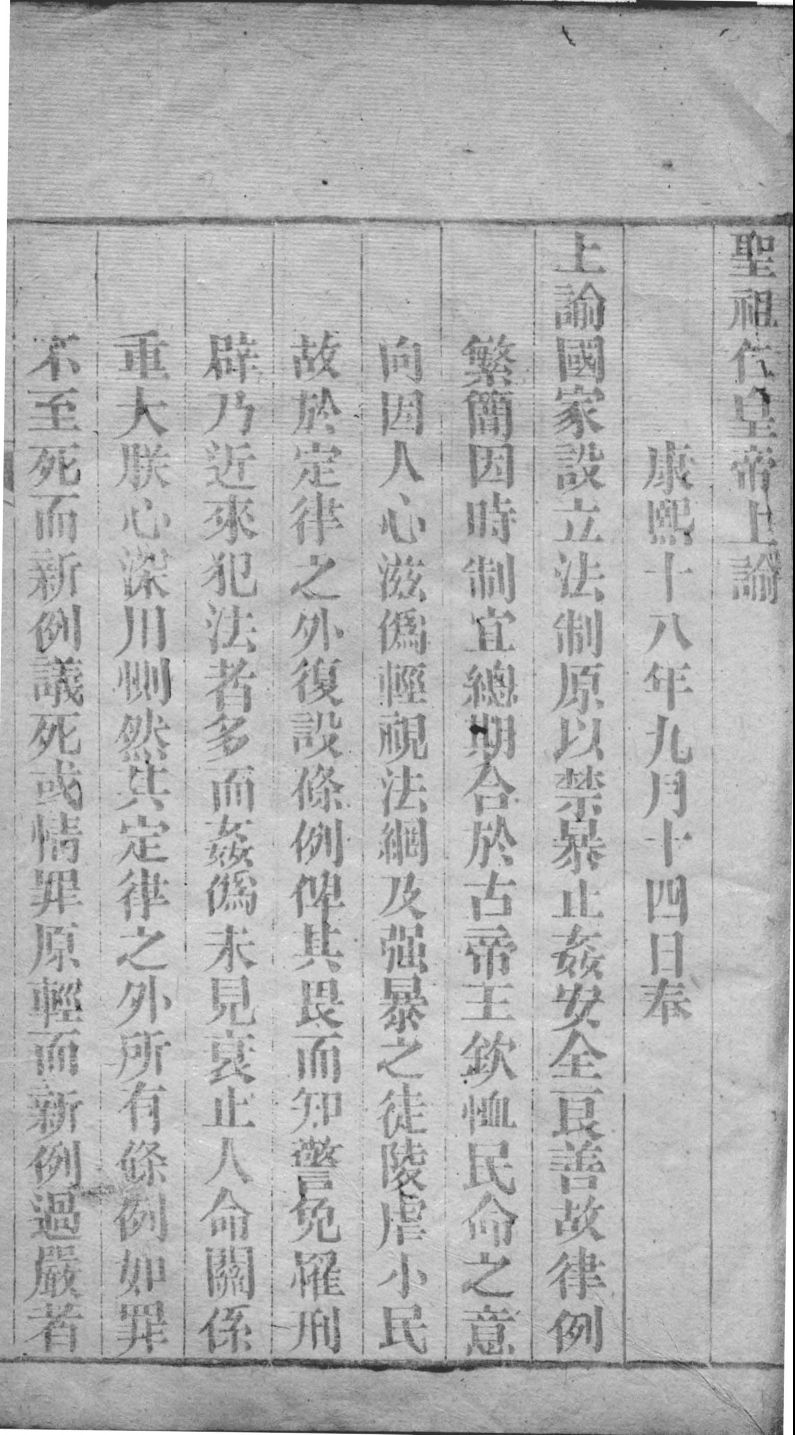 聖祖仁皇帝上諭
康熙十八年九月十四日奉
上諭國家設立法制原以禁暴止姦安全良善故律例
繁簡因時制宜總期合於古帝王欽恤民命之意
向因人心滋僞輕視法綱及强暴之徒陵虐小民
故於定律之外復設條例俾其畏而知警免罹刑
辟乃近來犯法者多而姦僞未見衰止人命關係
重大朕心深用惻然其定律之外所有條例如罪
不至死而新例議死或情罪原輕而新例過嚴者